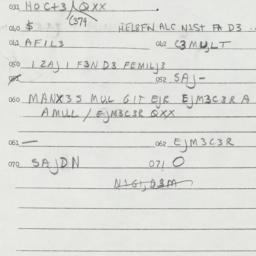 031 HOC+3/QXX
C374
040 $ HELBFN ALC N1ST FA D3
041 AFIL3 042 C3MULT
050 IZAJ I F3N D3 FEMILJ3
052 SAJ-
060 MANX35 MUL GIT EJR EJM3C3R A
AMUL / EJM3C3R QXX
061 — 062 EJM3C3R
070 SAJDN 071 O